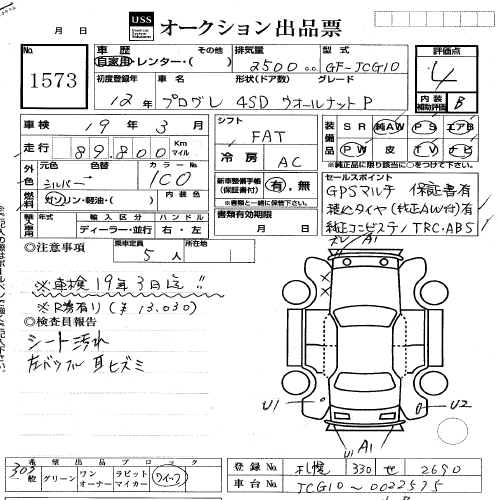 月 日
USS
オークション出品票
No.
1573
車歴 その他
自家用・レンター・( )
排気量
2500 cc
型式
GF-JCG10
評価点
4
内装補助評価 B
初度登録年
12年
車名
プログレ
形状(ドア数)
4SD
グレード
ウオールナットP
車検
19年 3月
走行
89,800 Km
マイル
シフト
FAT
冷房
AC
装備品
SR 純AW PS エアB
PW 皮 TV ナビ
※純正品に限り該当に○をつけて下さい。
外色
元色
シルバー
色替
カラーNo.
1C0
燃料
ガソリン・軽油・( )
内装色
新車整備手帳(保証書付)
有・無
※書類と一緒に保管して下さい。
輸入車
輸入区分
ディーラー・並行
ハンドル
右・左
書類有効期限
月 日
セールスポイント
GPSマルチ 保証書有
純正コンビステア TRC・ABS
◎注意事項
乗車定員
5人
所在地
※車検19年3日迄!!
※R券有り(¥13,030)
◎検査員報告
シート汚れ
A1
U1
U2
U1 A1
希望出品ブロック
グリーン
ワンオーナー
ラビットマイカー
登録No.
札幌 330 せ 2690
車台No.
JCG10〜0022575